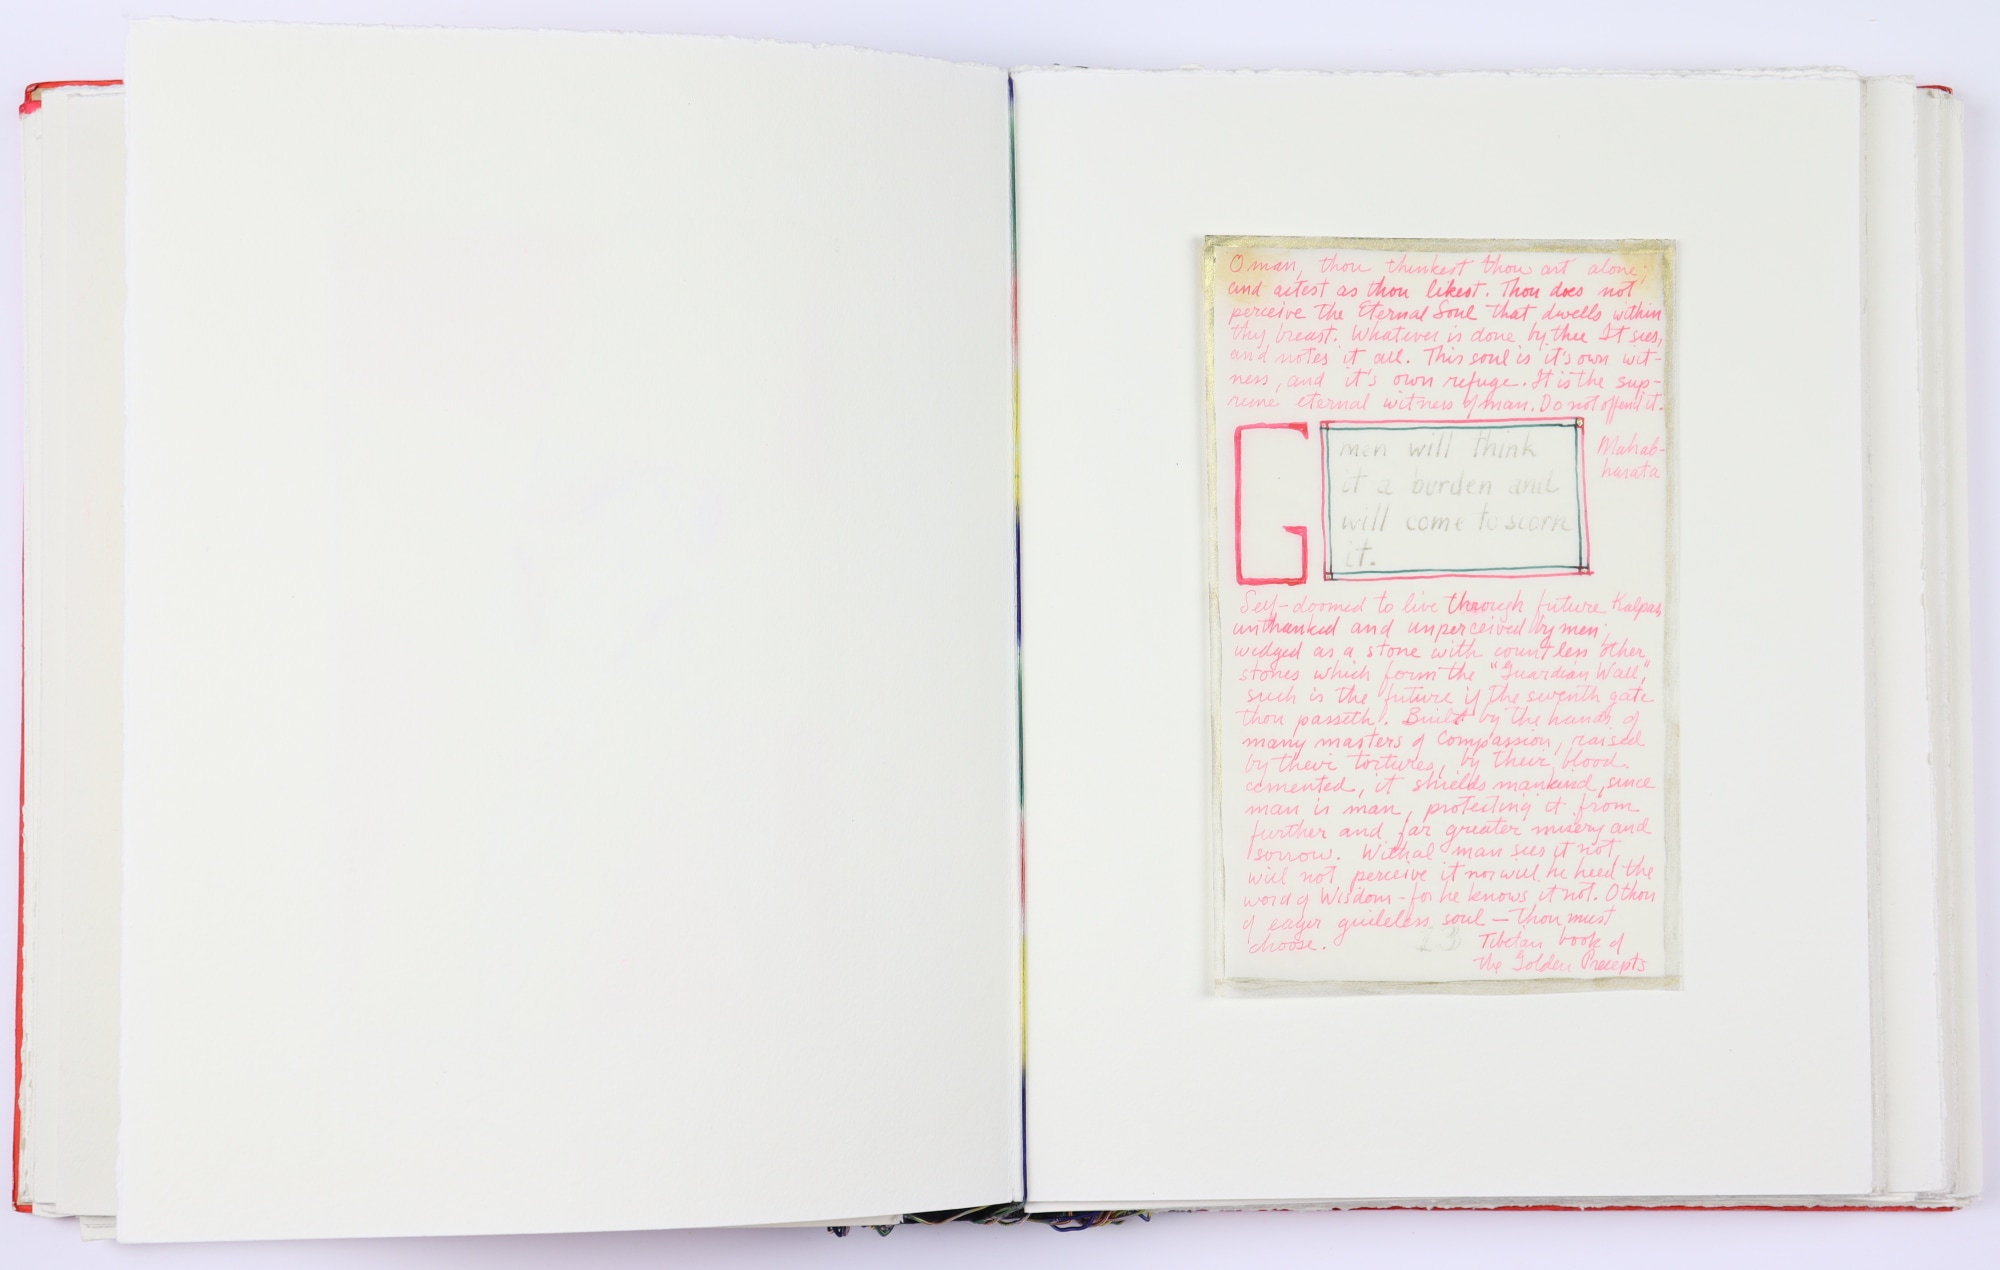 O man, thou thinkest thou art alone;
and actest as thou likest. Thou does not
perceive the Eternal Soul that dwells within
thy breast. Whatever is done by thee It sees,
and notes it all. This soul is it's own wit-
ness, and it's own refuge. It is the sup-
reme eternal witness of man. Do not offend it.
Mahab-
harata
G
men will think
it a burden and
will come to scorn
it.
Self-doomed to live through future Kalpas,
unthanked and unperceived by men;
wedged as a stone with countless other
stones which form the "Guardian Wall,"
such is the future if the seventh gate
thou passeth. Built by the hands of
many masters of Compassion, raised
by their tortures, by their blood
cemented, it shields mankind, since
man is man, protecting it from
further and far greater misery and
sorrow. Withal man sees it not,
will not perceive it nor will he heed the
word of Wisdom - for he knows it not. O thou
of eager guileless soul — thou must
choose.
Tibetan book of
the Golden Precepts